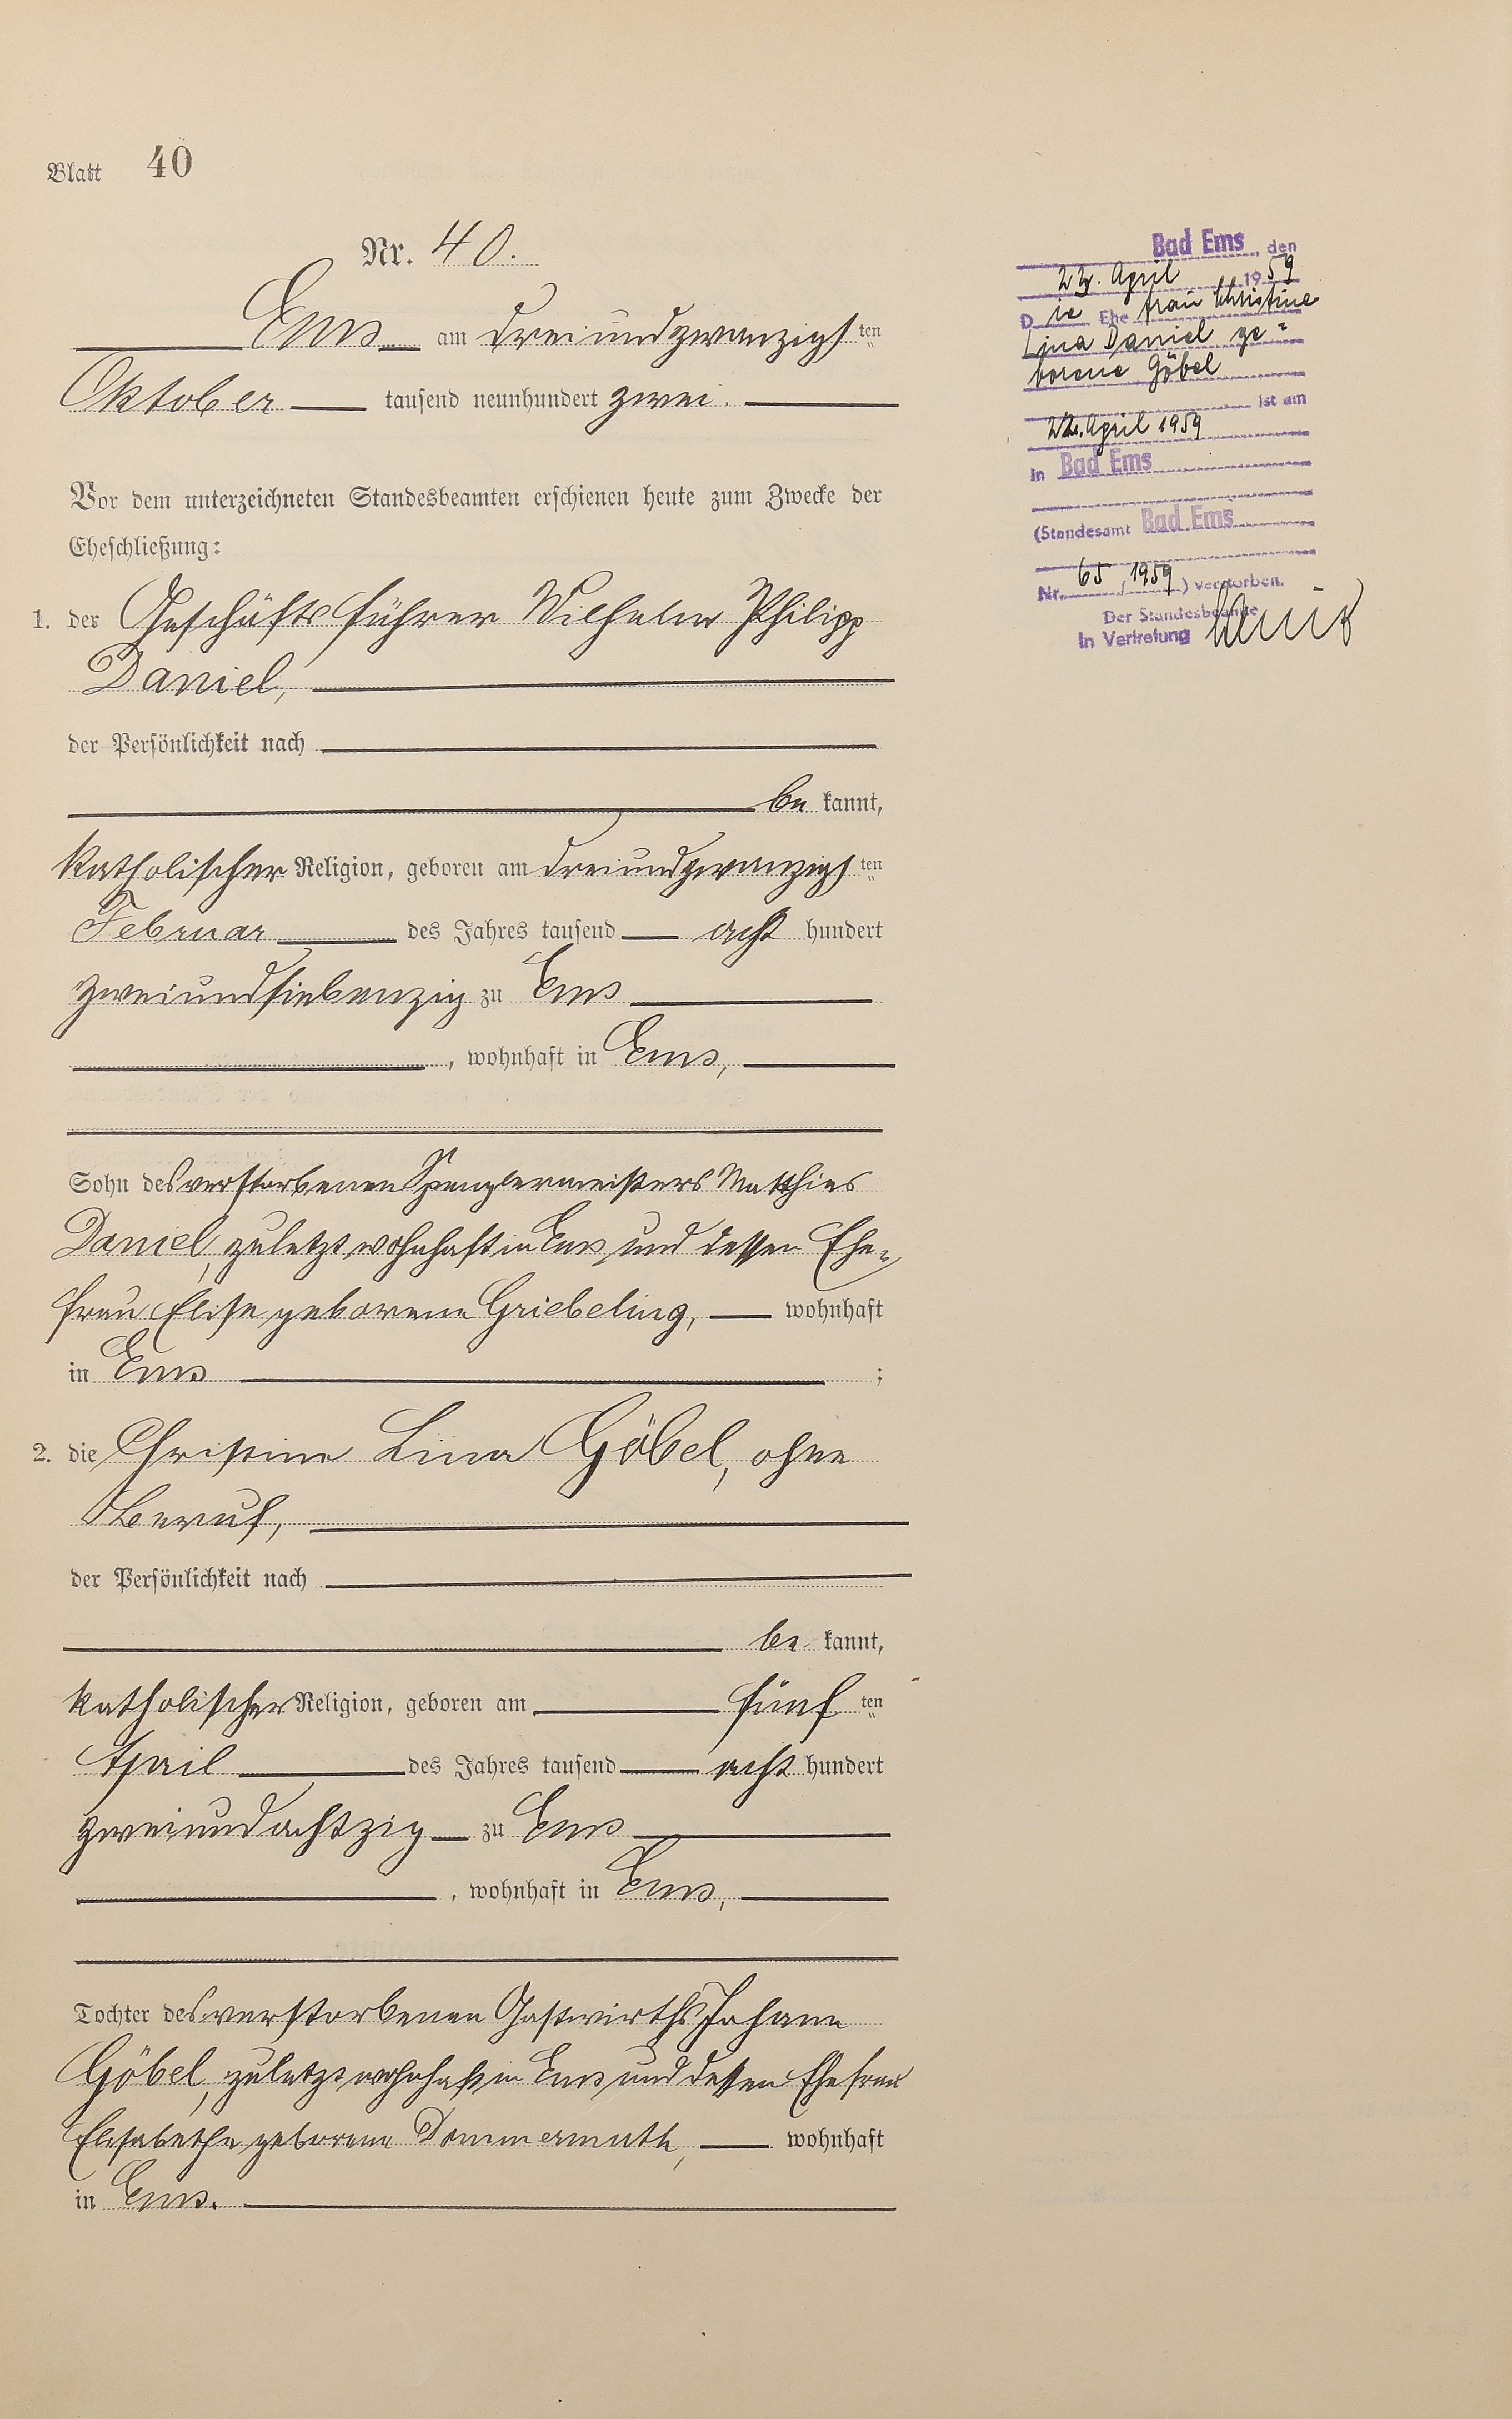 Blatt 40
Nr. 40.
Ems am dreiundzwanzigsten
Oktober tausend neunhundert zwei.
Vor dem unterzeichneten Standesbeamten erschienen heute zum Zwecke der
Eheschließung:
1. der Geschäftsführer Wilhelm Philipp
Daniel,
der Persönlichkeit nach
be kannt,
katholischer Religion, geboren am dreiundzwanzigsten
Februar des Jahres tausend acht hundert
zweiundsiebenzig zu Ems
, wohnhaft in Ems,
Sohn des verstorbenen Spenglermeisters Matthies
Daniel, zuletzt wohnhaft in Ems und dessen Ehe-
frau Elise geborene Griebeling, wohnhaft
in Ems ;
2. die Christine Lina Göbel, ohne
Beruf,
der Persönlichkeit nach
be kannt,
katholischer Religion, geboren am fünf ten
April des Jahres tausend acht hundert
zweiundachtzig zu Ems
, wohnhaft in Ems,
Tochter des verstorbenen Gastwirths Johann
Göbel, zuletzt wohnhaft in Ems und dessen Ehefrau
Elisabethe geborene Dommermuth, wohnhaft
in Ems.
Bad Ems, den
23. April 1959
Die Ehefrau Christine
Lina Daniel ge=
borene Göbel
ist am
22. April 1959
in Bad Ems
(Standesamt Bad Ems
Nr. 65/1959) verstorben.
Der Standesbeamte
In Vertretung